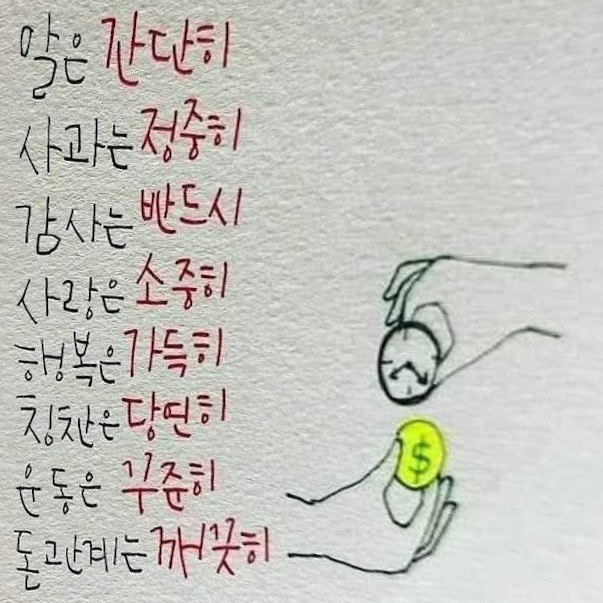 말은 간단히
사과는 정중히
감사는 반드시
사랑은 소중히
행복은 가득히
칭찬은 당연히
운동은 꾸준히
돈관계는 깨끗히
$